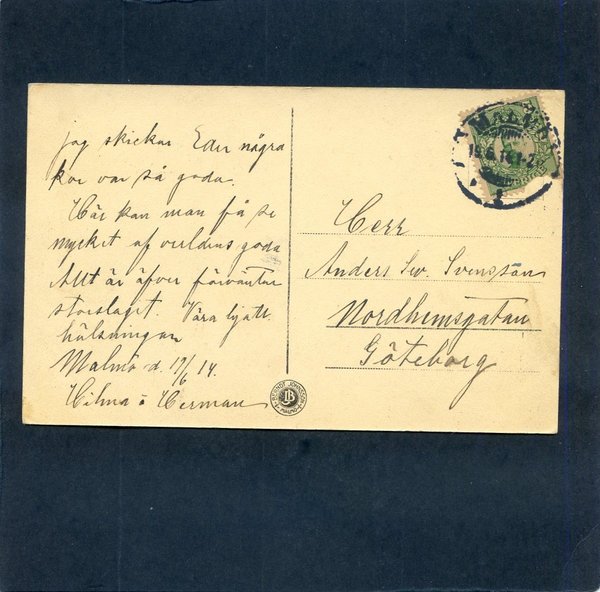 jag skickar Eder några
kor var så goda.
Här kan man få se
mycket af verldens goda
Allt är äfver förväntan
storslaget. Våra hjärtl.
hälsningar
Malmö d. 19/6 14.
Hilma o Herman
Herr
Anders Sv. Svensson
Nordhemsgatan
Göteborg
MALMÖ
BERNDT JOHNSSON
JB
MALMÖ